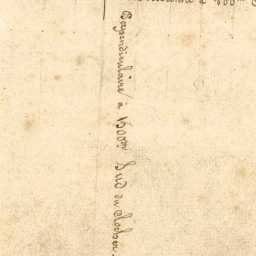 à 1000m
Perpendiculaire à 1500m Sud du clocher.